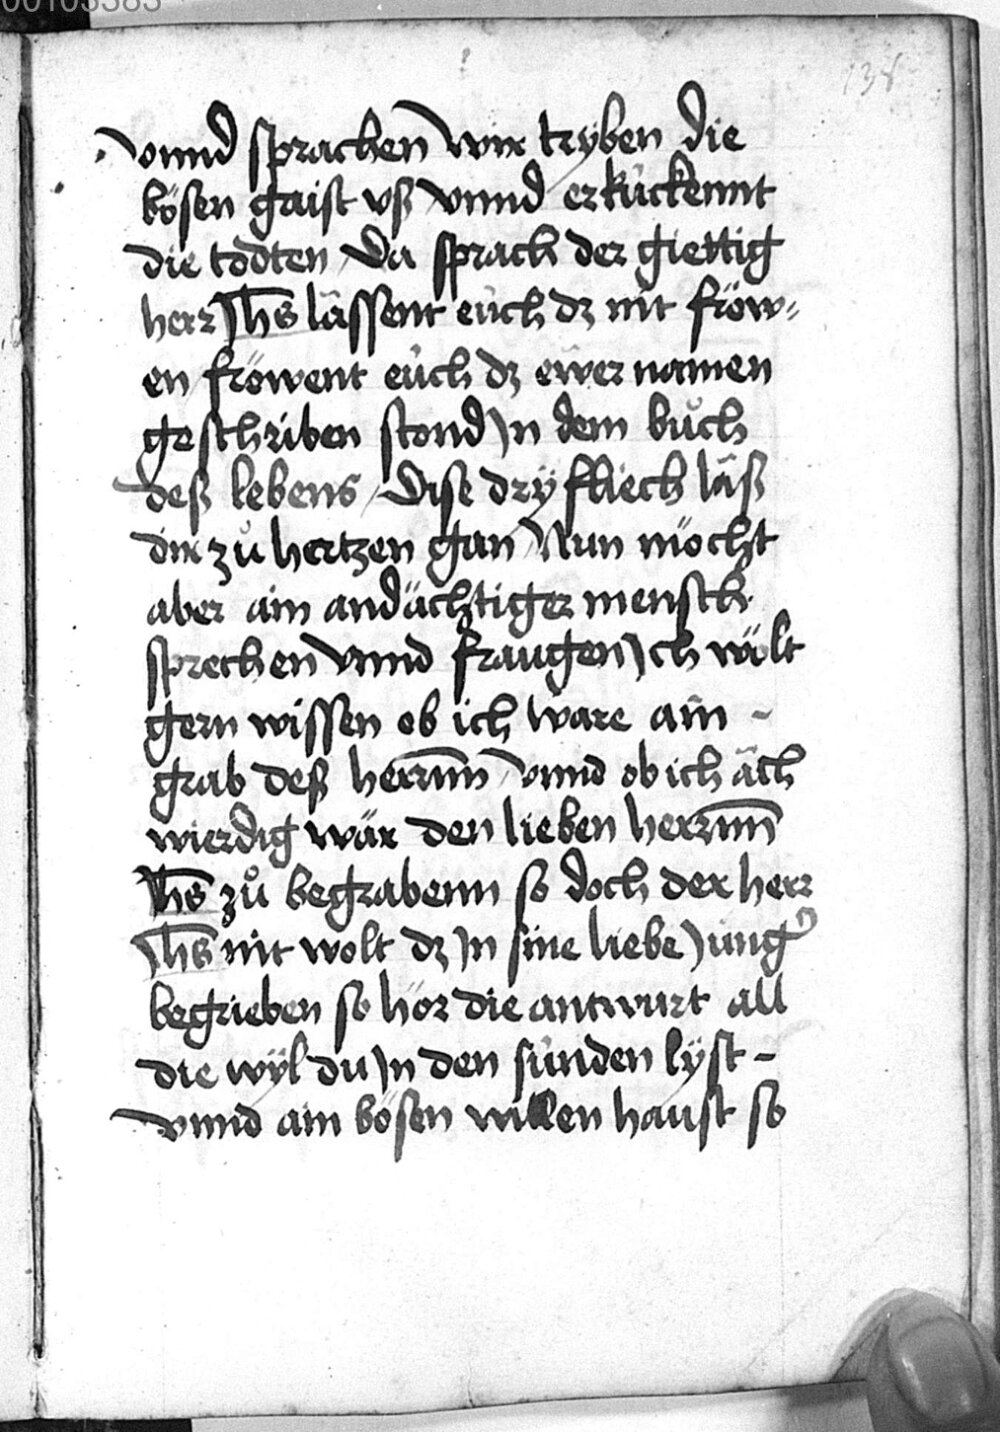 00103383
138
vnnd sprachen wir tryben die
bösen gaist vß vnnd erkückennt
die todten Da sprach der giettig
herr Jhs låssent eüch dz nit fröw-
en fröwent eüch dz ewer namen
geschriben stond Jn dem bůch
deß lebens Dise dry fliech låß
dir zů hertzen gan Nun möcht
aber ain andächtiger mensch
sprechen vnnd fraugen Jch wölt
gern wissen ob ich wäre ain -
grab deß herrnn vnnd ob ich ächt
wierdig wär den lieben herrnn
Jhs zů begrabenn so doch der herr
Jhs nit wolt dz Jn sine liebe Jünger
begrieben so hör die antwurt all
die wyl du Jn den sünden lyst -
vnnd ain bösen willen haust so